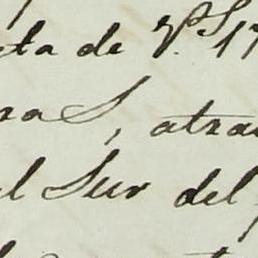 ta de V.S. 17
ra S, atra
l Sur del